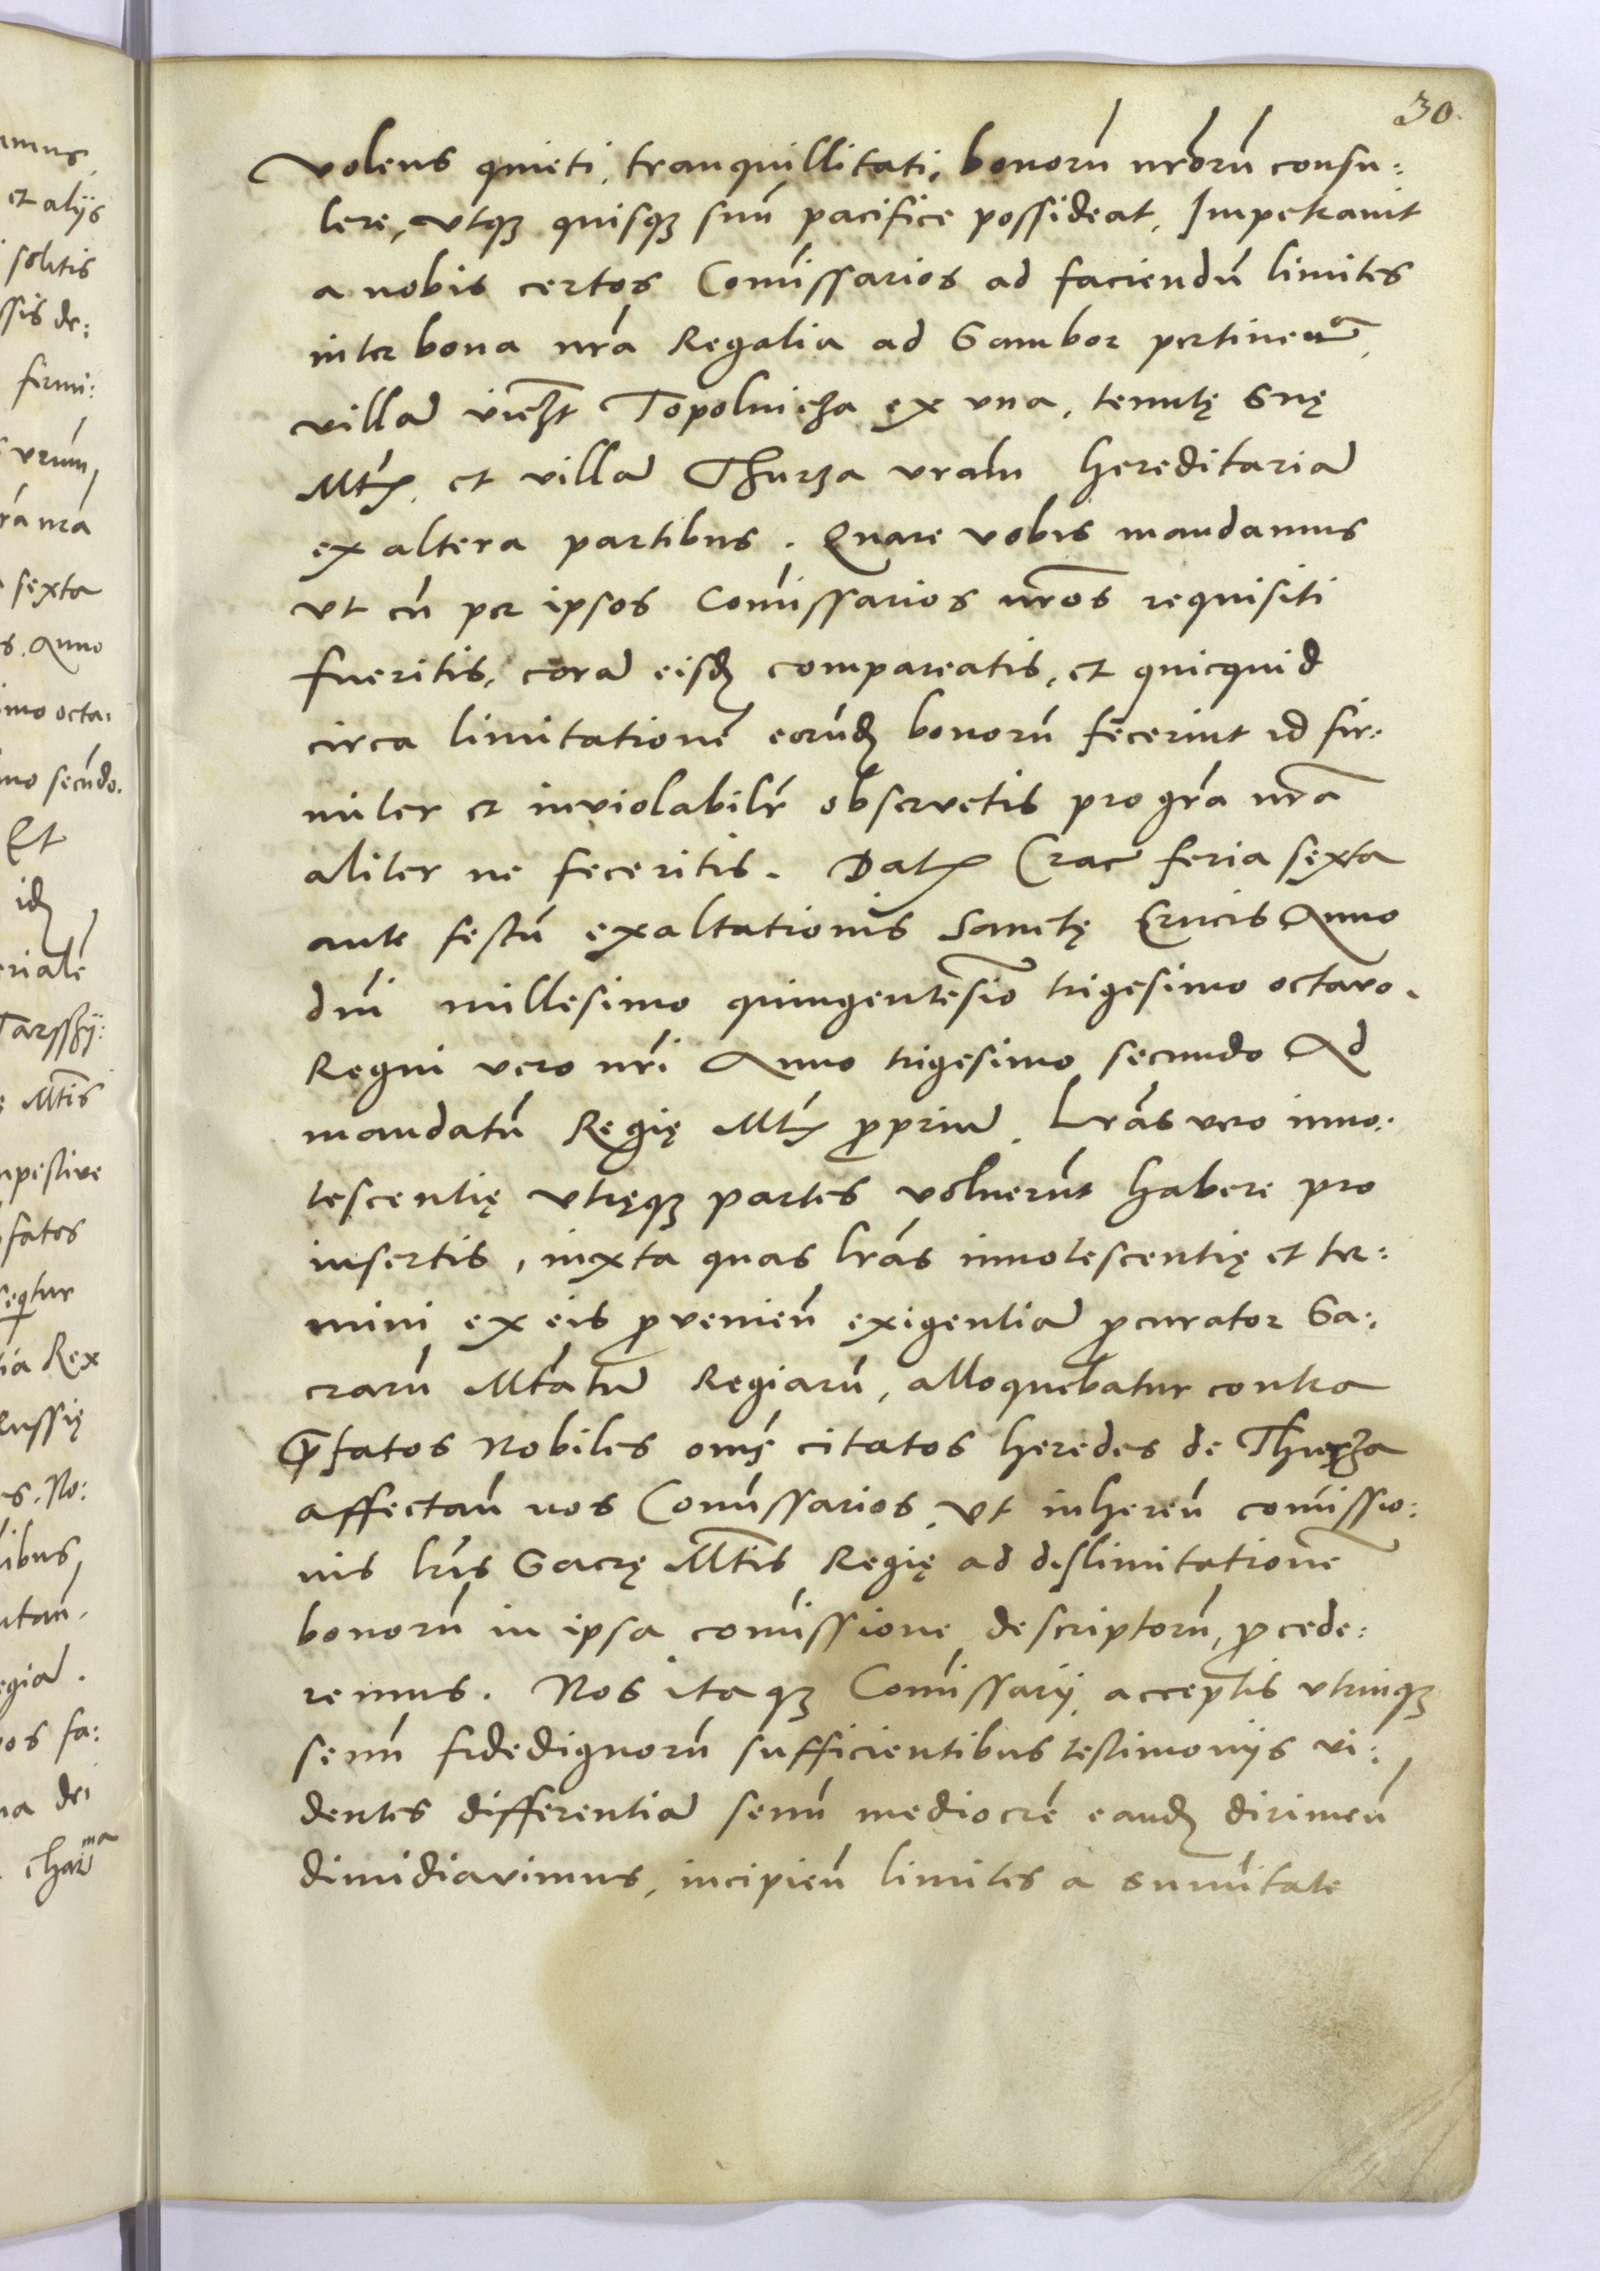 30.
volens quieti, tranquillitati, bonorū nr̄orū consu:
lere, utqꝫ quisqꝫ suū pacifice possideat, Impetravit
a nobis certos Com̄issarios ad faciendū limites
inter bona nr̄a Regalia ad Sambor pertinen̄,
villā Topolnicza ex una, tenutę Suę
Mt̄ꝭ, et villā Thurza vrām hereditariā
ex altera partibus. Quare vobis mandamus
ut cū per ipsos Com̄issarios nr̄os requisiti
fueritis, corā eisdꝫ compareatis, et quicquid
circa limitationē eorūdꝫ bonorū fecerint id fir:
miter et inviolabilr̄ observetis pro gr̄a nr̄a
aliter ne feceritis. Datꝭ Crac̄ feria sexta
ante festū exaltationis Sanctę Crucis Anno
dn̄i millesimo quingentesīo trigesimo octavo.
Regni vero nr̄i Anno trigesimo secundo Ad
mandatū Regię Mt̄ꝭ ꝓpriū. Lr̄as vero inno:
tescentię utręqꝫ partes voluerūt habere pro
insertis, iuxta quas lr̄as innotescentię et ter:
mini ex eis ꝓvenien̄ exigentiā ꝓcurator Sa:
crarū Mt̄atū Regiarū, alloquebatur contra
p̄fatos Nobiles om̄s citatos heredes de Thurza
affectan̄ nos Com̄issarios, ut inheren̄ com̄issio:
nis lr̄is Sacrę Mt̄is Regię ad dislimitationē
bonorū in ipsa com̄issione descriptorū, ꝓcede:
remus. Nos itaqꝫ Com̄issarij, acceptis utrinqꝫ
senū fidedignorū sufficientibus testimonijs vi:
dentes differentiā senū mediocrē eandꝫ dirimen̄
dimidiavimus, incipien̄ limites a sum̄itate

et alijs
solitis
ssis de:
firmi:
sexta
s. Anno
imo octa:
mo secūdo.
Et
idꝫ
erialē
Mt̄is
mpestive
fatos
seqtur
Rex
Russię
es. No:
libus,
os fa:
na dei